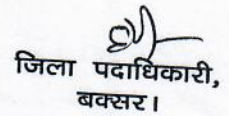 जिला पदाधिकारी,
बक्सर।